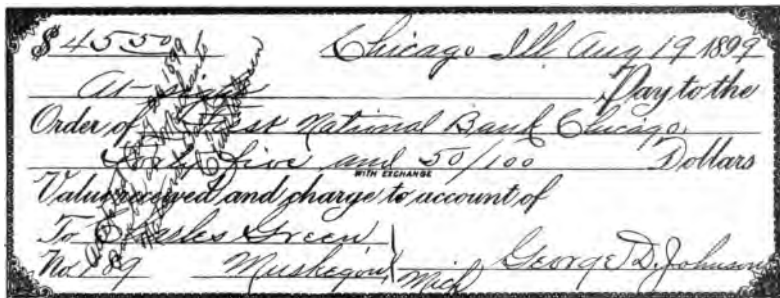 $ 45 50 Chicago Ill. Aug 19 1899
At sight Pay to the
Order of First National Bank Chicago
Forty five and 50/100 Dollars
WITH EXCHANGE
Value received and charge to account of
To Charles Green
No 189 Muskegon, Mich George D. Johnson